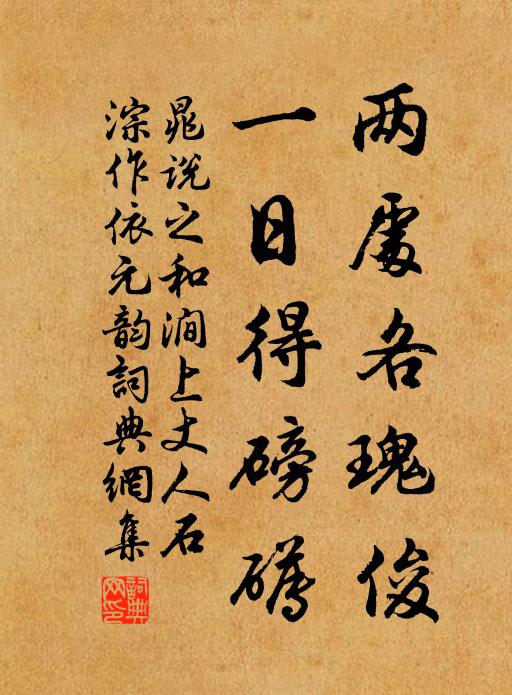 两處各瑰俊
一日得磅礴
晁说之和涧上丈人石
淙作依元韵詞典網集
詞典
网印